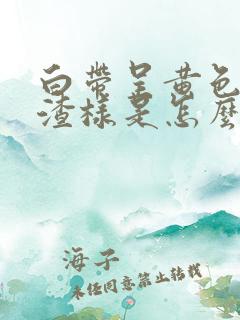 白带呈黄色
渣样是怎麽
海子
未经同意禁止转载